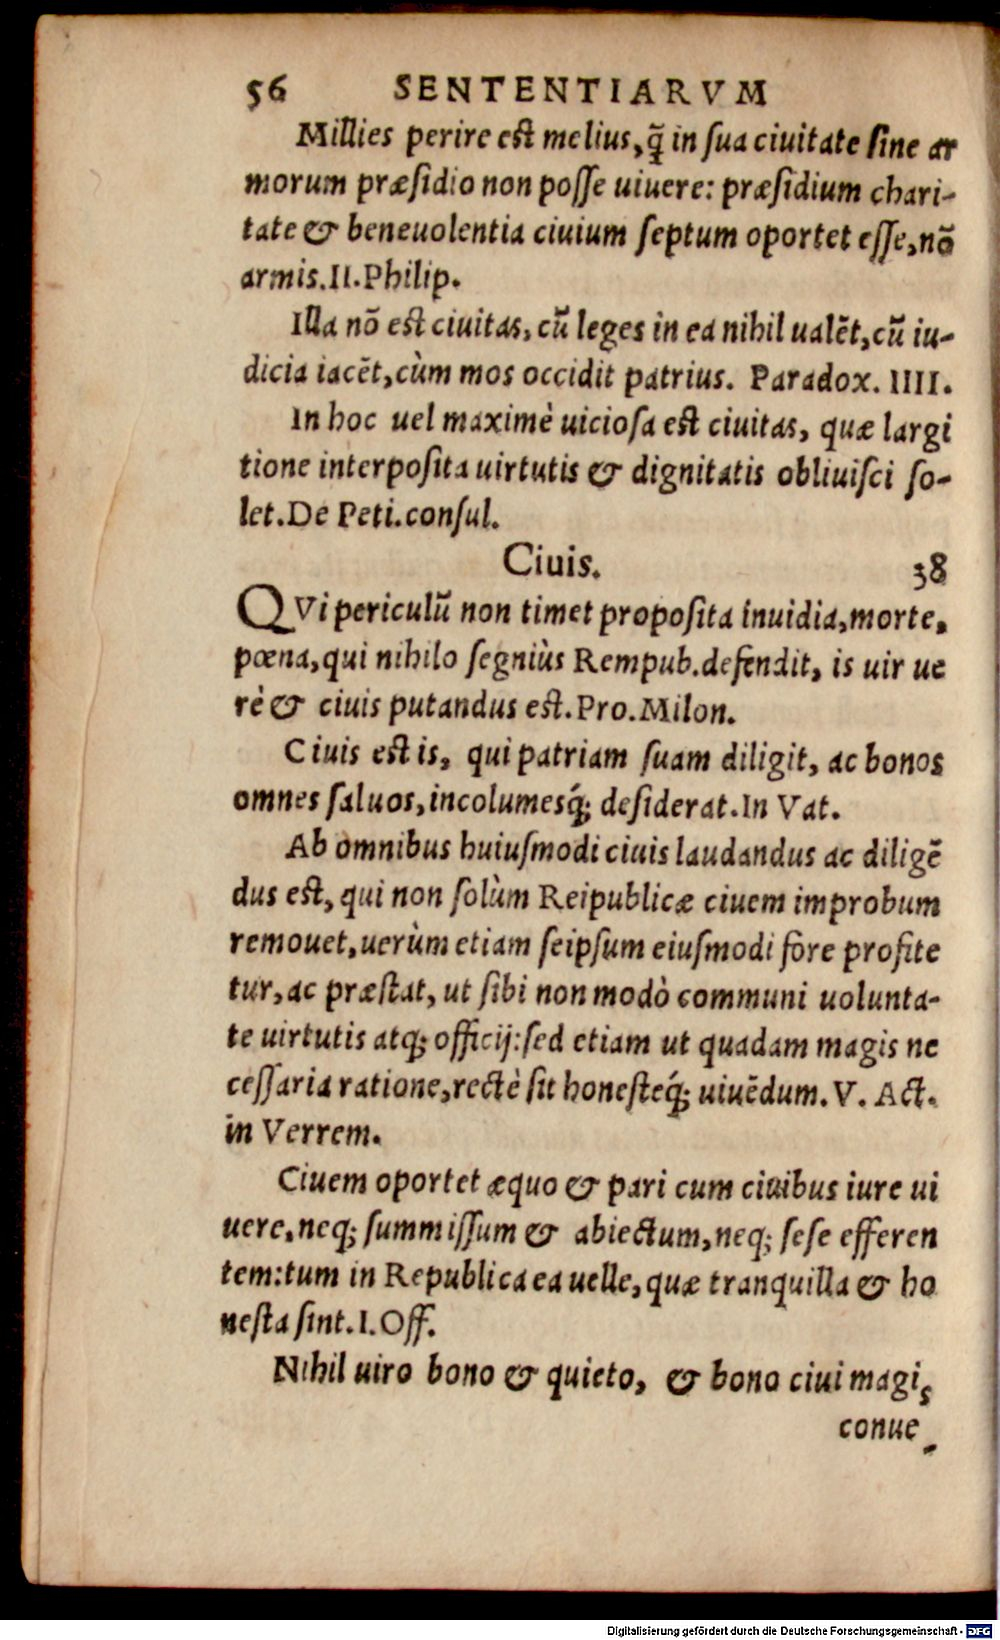 56 SENTENTIARVM
Millies perire est melius, q̃ in sua ciuitate sine ar
morum præsidio non posse uiuere: præsidium chari-
tate & beneuolentia ciuium septum oportet esse, nõ
armis. II. Philip.
Illa nõ est ciuitas, cũ leges in ea nihil ualẽt, cũ iu-
dicia iacẽt, cùm mos occidit patrius. Paradox. IIII.
In hoc uel maximè uiciosa est ciuitas, quæ largi
tione interposita uirtutis & dignitatis obliuisci so-
let. De Peti. consul.
Ciuis. 38
QVi periculũ non timet proposita inuidia, morte,
pœna, qui nihilo segniùs Rempub. defendit, is uir ue
rè & ciuis putandus est. Pro. Milon.
Ciuis est is, qui patriam suam diligit, ac bonos
omnes saluos, incolumesq́; desiderat. In Vat.
Ab omnibus huiusmodi ciuis laudandus ac diligẽ
dus est, qui non solùm Reipublicæ ciuem improbum
remouet, uerùm etiam seipsum eiusmodi fore profite
tur, ac præstat, ut sibi non modò communi uolunta-
te uirtutis atq; officij: sed etiam ut quadam magis ne
cessaria ratione, rectè sit honesteq́; uiuẽdum. V. Act.
in Verrem.
Ciuem oportet æquo & pari cum ciuibus iure ui
uere, neq; summissum & abiectum, neq; sese efferen
tem: tum in Republica ea uelle, quæ tranquilla & ho
nesta sint. I. Off.
Nihil uiro bono & quieto, & bono ciui magis
conue
Digitalisierung gefördert durch die Deutsche Forschungsgemeinschaft - DFG